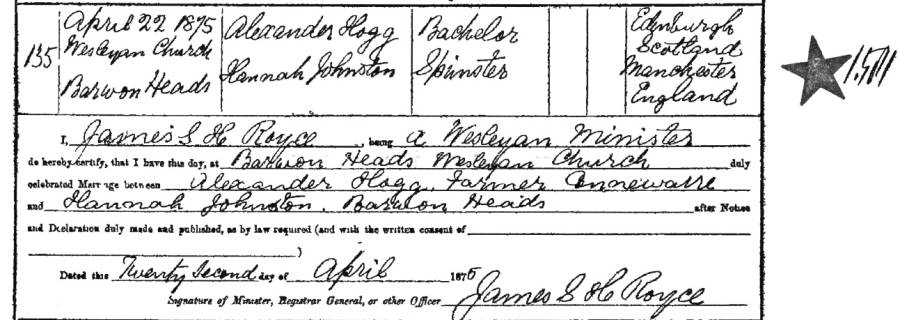 135
April 22 1875
Wesleyan Church
Barwon Heads
Alexander Hogg
Hannah Johnston
Bachelor
Spinster
Edenburgh
Scotland
Manchester
England
I, James S H Royce, being a Wesleyan Minister
do hereby certify, that I have this day, at Barwon Heads Wesleyan Church duly
celebrated Marriage between Alexander Hogg, Farmer Connewarre
and Hannah Johnston, Barwon Heads after Notice
and Declaration duly made and published, as by law required (and with the written consent of
)
Dated this Twenty Second day of April 1875
Signature of Minister, Registrar General, or other Officer James S H Royce